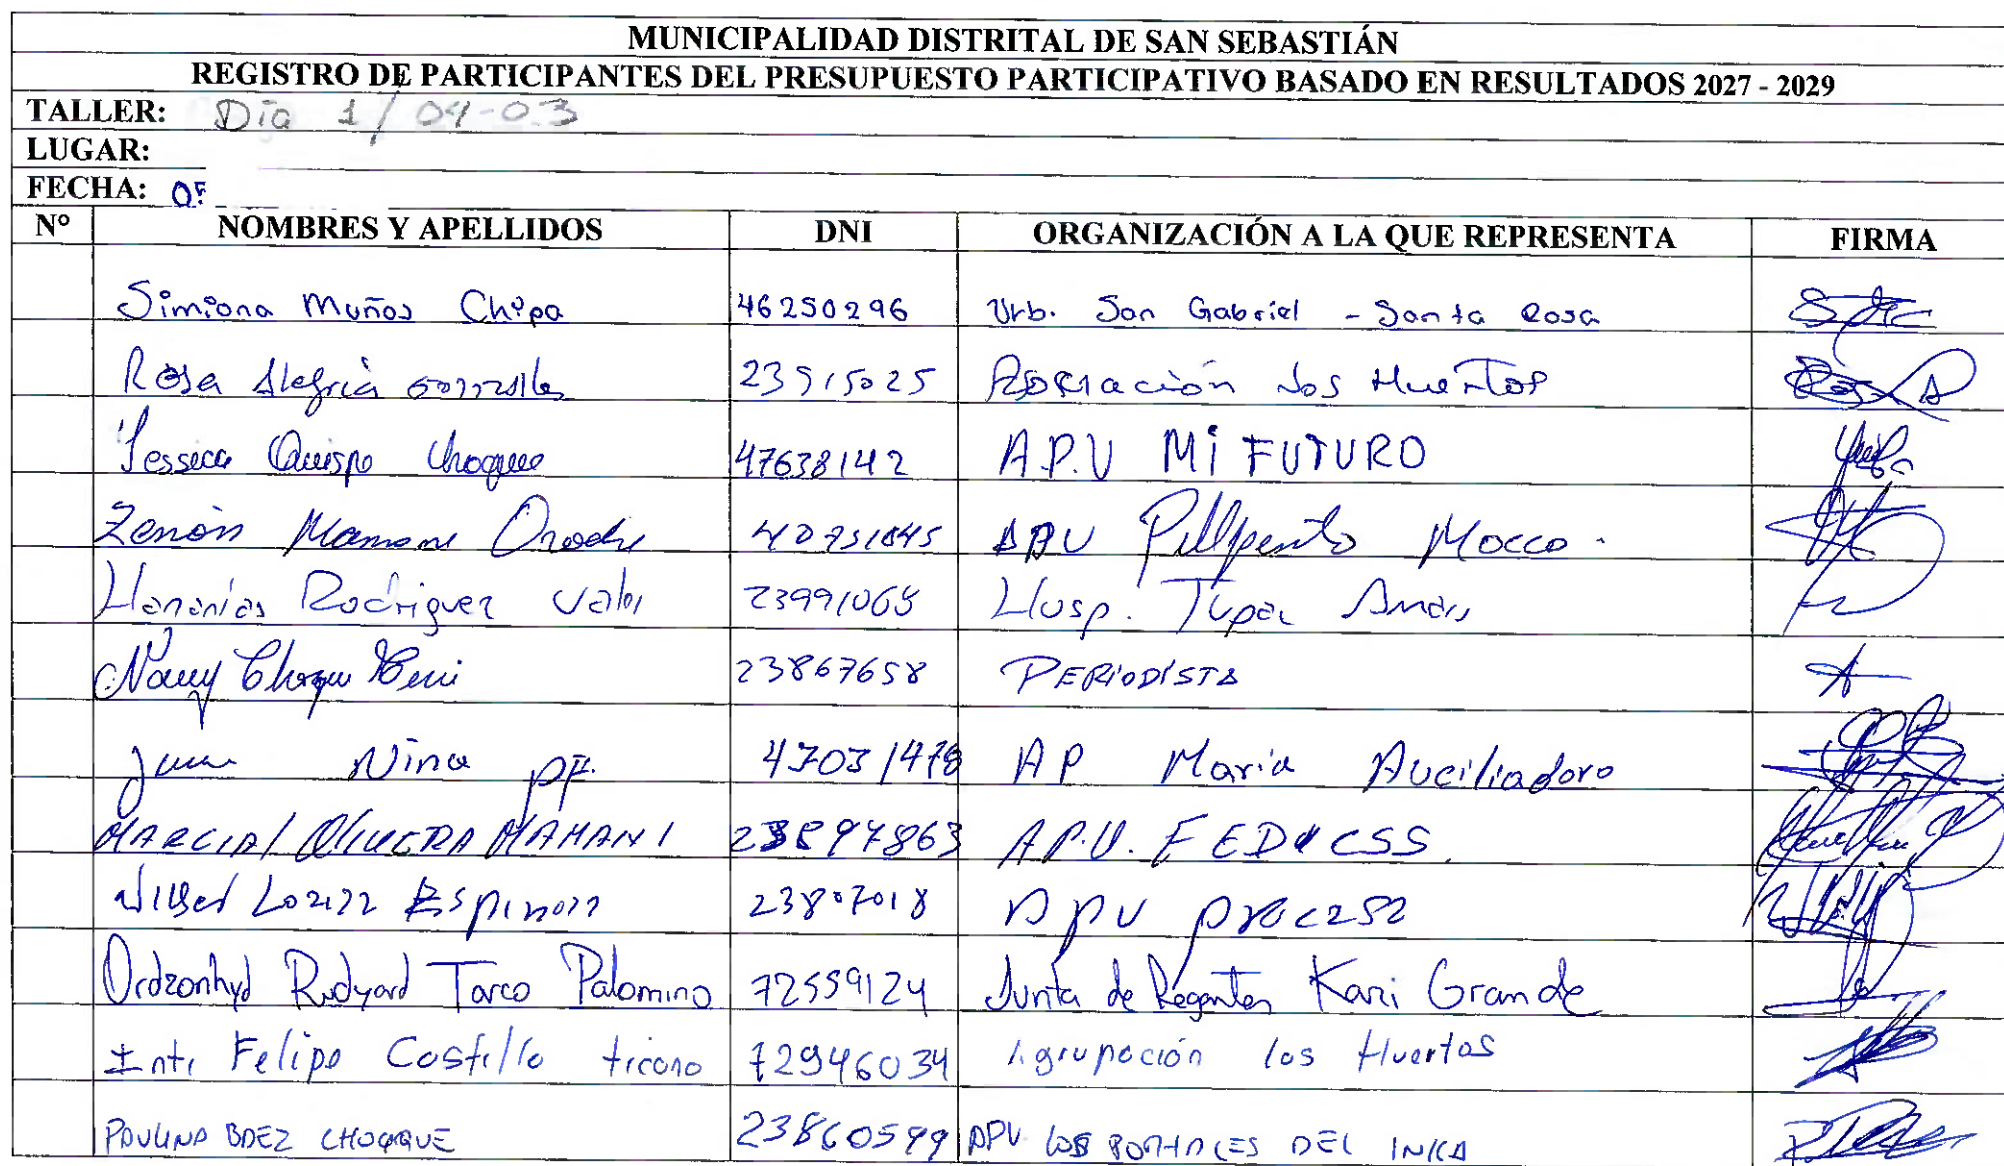 MUNICIPALIDAD DISTRITAL DE SAN SEBASTIÁN
REGISTRO DE PARTICIPANTES DEL PRESUPUESTO PARTICIPATIVO BASADO EN RESULTADOS 2027 - 2029
TALLER: Día 1 / 04-03
LUGAR:
FECHA:
N° NOMBRES Y APELLIDOS DNI ORGANIZACIÓN A LA QUE REPRESENTA FIRMA
Simiona Muños Chipa 46250296 Urb. San Gabriel - Santa Rosa
Rosa Alegria 23915025 Asociación Los Huertos
Yessica Quispe Choque 47638142 A.P.U MI FUTURO
Zenón Mamani 40751845 APU Pillpento Mocco.
Hananías Rodriguez 23991065 Husp. Tupac Amaru
Nancy Choque 23867658 PERIODISTA
Juan Nina 47031478 AP Maria Auciliadora
MARCIAL OLIVERA MAMANI 23897863 A.P.U. FEDUCSS.
Wilber Loaiza Espinoza 23807018 APU
Ordzonhyd Rudyard Tarco Palomino 72559124 Junta de Regantes Kari Grande
Inti Felipe Costillo ticona 72946034 Agrupación los Huertos
PAULINA BAEZ CHOQQUE 23860599 APU LOS PORTALES DEL INKA